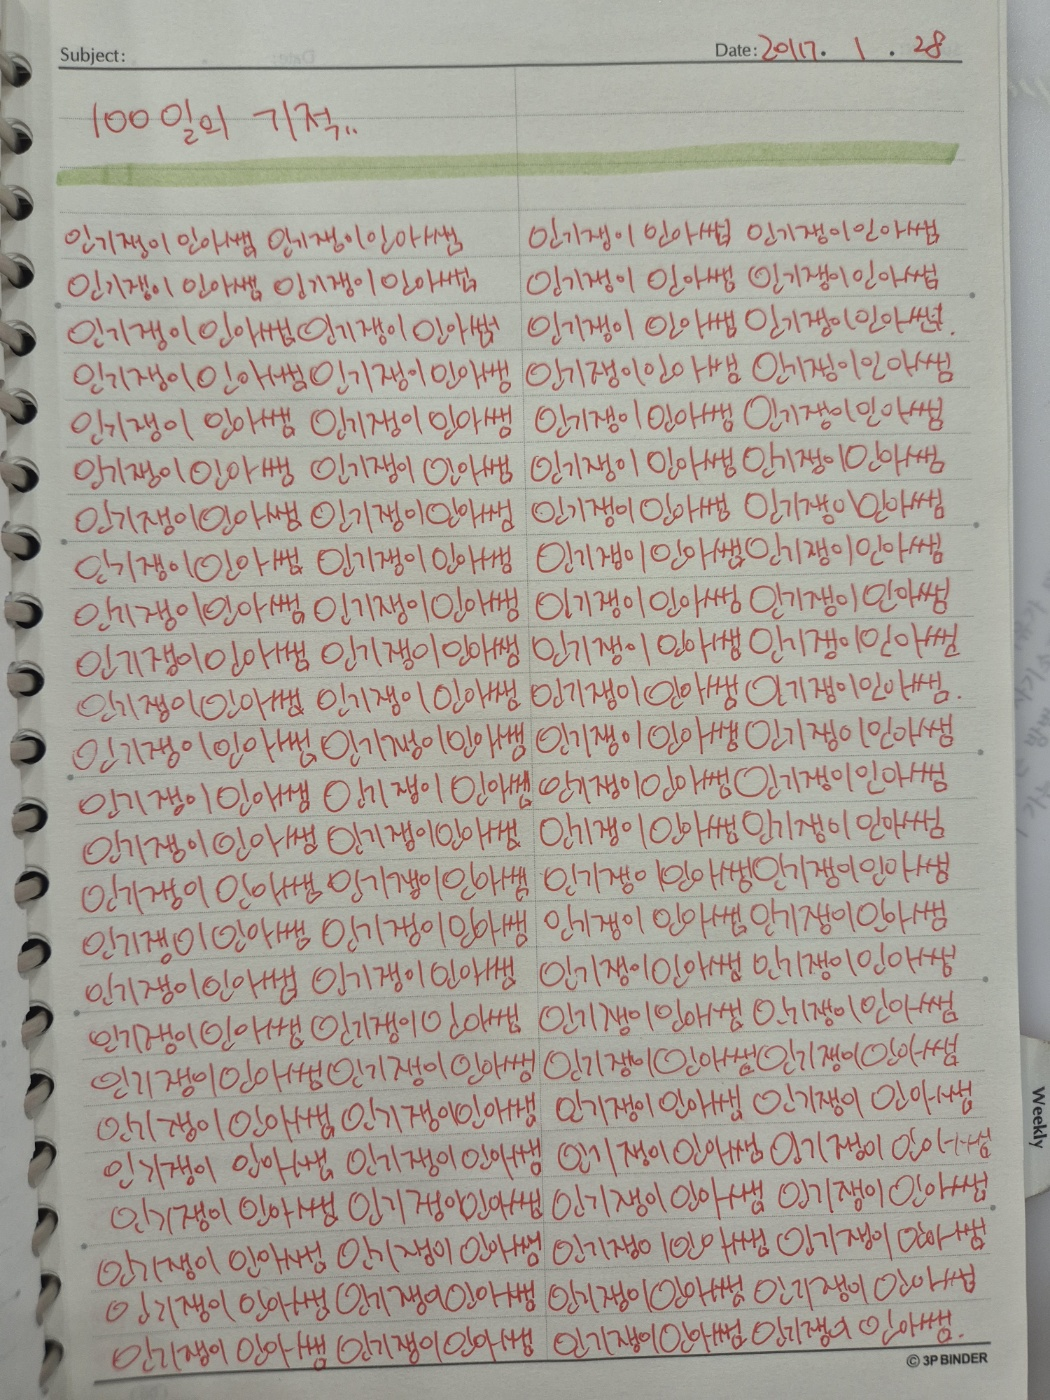 Subject:
Date: 2017. 1. 28
100일의 기적..
인기쟁이 인아쌤 인기쟁이 인아쌤 인기쟁이 인아쌤 인기쟁이 인아쌤
인기쟁이 인아쌤 인기쟁이 인아쌤 인기쟁이 인아쌤 인기쟁이 인아쌤
인기쟁이 인아쌤 인기쟁이 인아쌤 인기쟁이 인아쌤 인기쟁이 인아쌤.
인기쟁이 인아쌤 인기쟁이 인아쌤 인기쟁이 인아쌤 인기쟁이 인아쌤
인기쟁이 인아쌤 인기쟁이 인아쌤 인기쟁이 인아쌤 인기쟁이 인아쌤
인기쟁이 인아쌤 인기쟁이 인아쌤 인기쟁이 인아쌤 인기쟁이 인아쌤
인기쟁이 인아쌤 인기쟁이 인아쌤 인기쟁이 인아쌤 인기쟁이 인아쌤
인기쟁이 인아쌤 인기쟁이 인아쌤 인기쟁이 인아쌤 인기쟁이 인아쌤
인기쟁이 인아쌤 인기쟁이 인아쌤 인기쟁이 인아쌤 인기쟁이 인아쌤
인기쟁이 인아쌤 인기쟁이 인아쌤 인기쟁이 인아쌤 인기쟁이 인아쌤
인기쟁이 인아쌤 인기쟁이 인아쌤 인기쟁이 인아쌤 인기쟁이 인아쌤.
인기쟁이 인아쌤 인기쟁이 인아쌤 인기쟁이 인아쌤 인기쟁이 인아쌤
인기쟁이 인아쌤 인기쟁이 인아쌤 인기쟁이 인아쌤 인기쟁이 인아쌤
인기쟁이 인아쌤 인기쟁이 인아쌤 인기쟁이 인아쌤 인기쟁이 인아쌤
인기쟁이 인아쌤 인기쟁이 인아쌤 인기쟁이 인아쌤 인기쟁이 인아쌤
인기쟁이 인아쌤 인기쟁이 인아쌤 인기쟁이 인아쌤 인기쟁이 인아쌤
인기쟁이 인아쌤 인기쟁이 인아쌤 인기쟁이 인아쌤 인기쟁이 인아쌤
인기쟁이 인아쌤 인기쟁이 인아쌤 인기쟁이 인아쌤 인기쟁이 인아쌤
인기쟁이 인아쌤 인기쟁이 인아쌤 인기쟁이 인아쌤 인기쟁이 인아쌤
인기쟁이 인아쌤 인기쟁이 인아쌤 인기쟁이 인아쌤 인기쟁이 인아쌤
인기쟁이 인아쌤 인기쟁이 인아쌤 인기쟁이 인아쌤 인기쟁이 인아쌤
인기쟁이 인아쌤 인기쟁이 인아쌤 인기쟁이 인아쌤 인기쟁이 인아쌤
인기쟁이 인아쌤 인기쟁이 인아쌤 인기쟁이 인아쌤 인기쟁이 인아쌤
인기쟁이 인아쌤 인기쟁이 인아쌤 인기쟁이 인아쌤 인기쟁이 인아쌤
인기쟁이 인아쌤 인기쟁이 인아쌤 인기쟁이 인아쌤 인기쟁이 인아쌤.
© 3P BINDER
Weekly